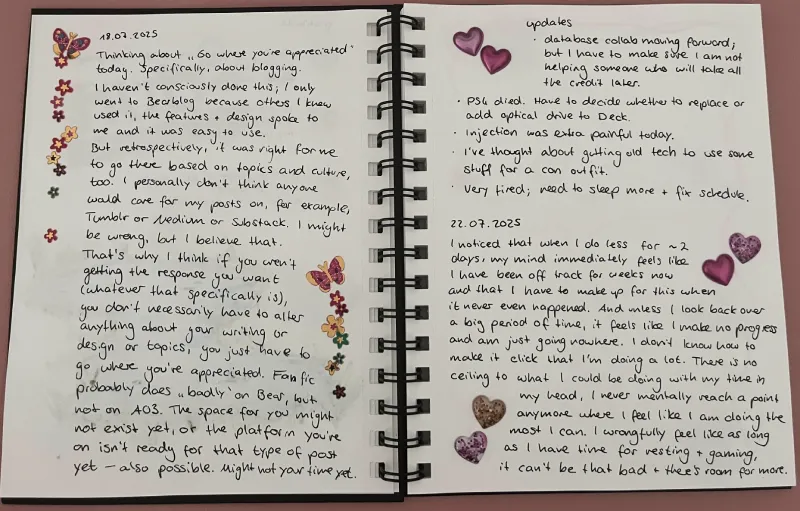 18.07.2025
Thinking about „Go where you're appreciated"
today. Specifically, about blogging.
I haven't consciously done this; I only
went to Bearblog because others I knew
used it, the features + design spoke to
me and it was easy to use.
But retrospectively, it was right for me
to go there based on topics and culture,
too. I personally don't think anyone
would care for my posts on, for example,
Tumblr or Medium or Substack. I might
be wrong, but I believe that.
That's why I think if you aren't
getting the response you want
(whatever that specifically is),
you don't necessarily have to alter
anything about your writing or
design or topics, you just have to
go where you're appreciated. Fanfic
probably does „badly" on Bear, but
not on AO3. The space for you might
not exist yet, or the platform you're
on isn't ready for that type of post
yet – also possible. Might not your time yet.
updates
· database collab moving forward;
but I have to make sure I am not
helping someone who will take all
the credit later.
· PS4 died. Have to decide whether to replace or
add optical drive to Deck.
· Injection was extra painful today.
· I've thought about gutting old tech to use some
stuff for a con outfit.
· Very tired; need to sleep more + fix schedule.
22.07.2025
I noticed that when I do less for ~2
days, my mind immediately feels like
I have been off track for weeks now
and that I have to make up for this when
it never even happened. And unless I look back over
a big period of time, it feels like I make no progress
and am just going nowhere. I don't know how to
make it click that I'm doing a lot. There is no
ceiling to what I could be doing with my time in
my head, I never mentally reach a point
anymore where I feel like I am doing the
most I can. I wrongfully feel like as long
as I have time for resting + gaming,
it can't be that bad + there's room for more.